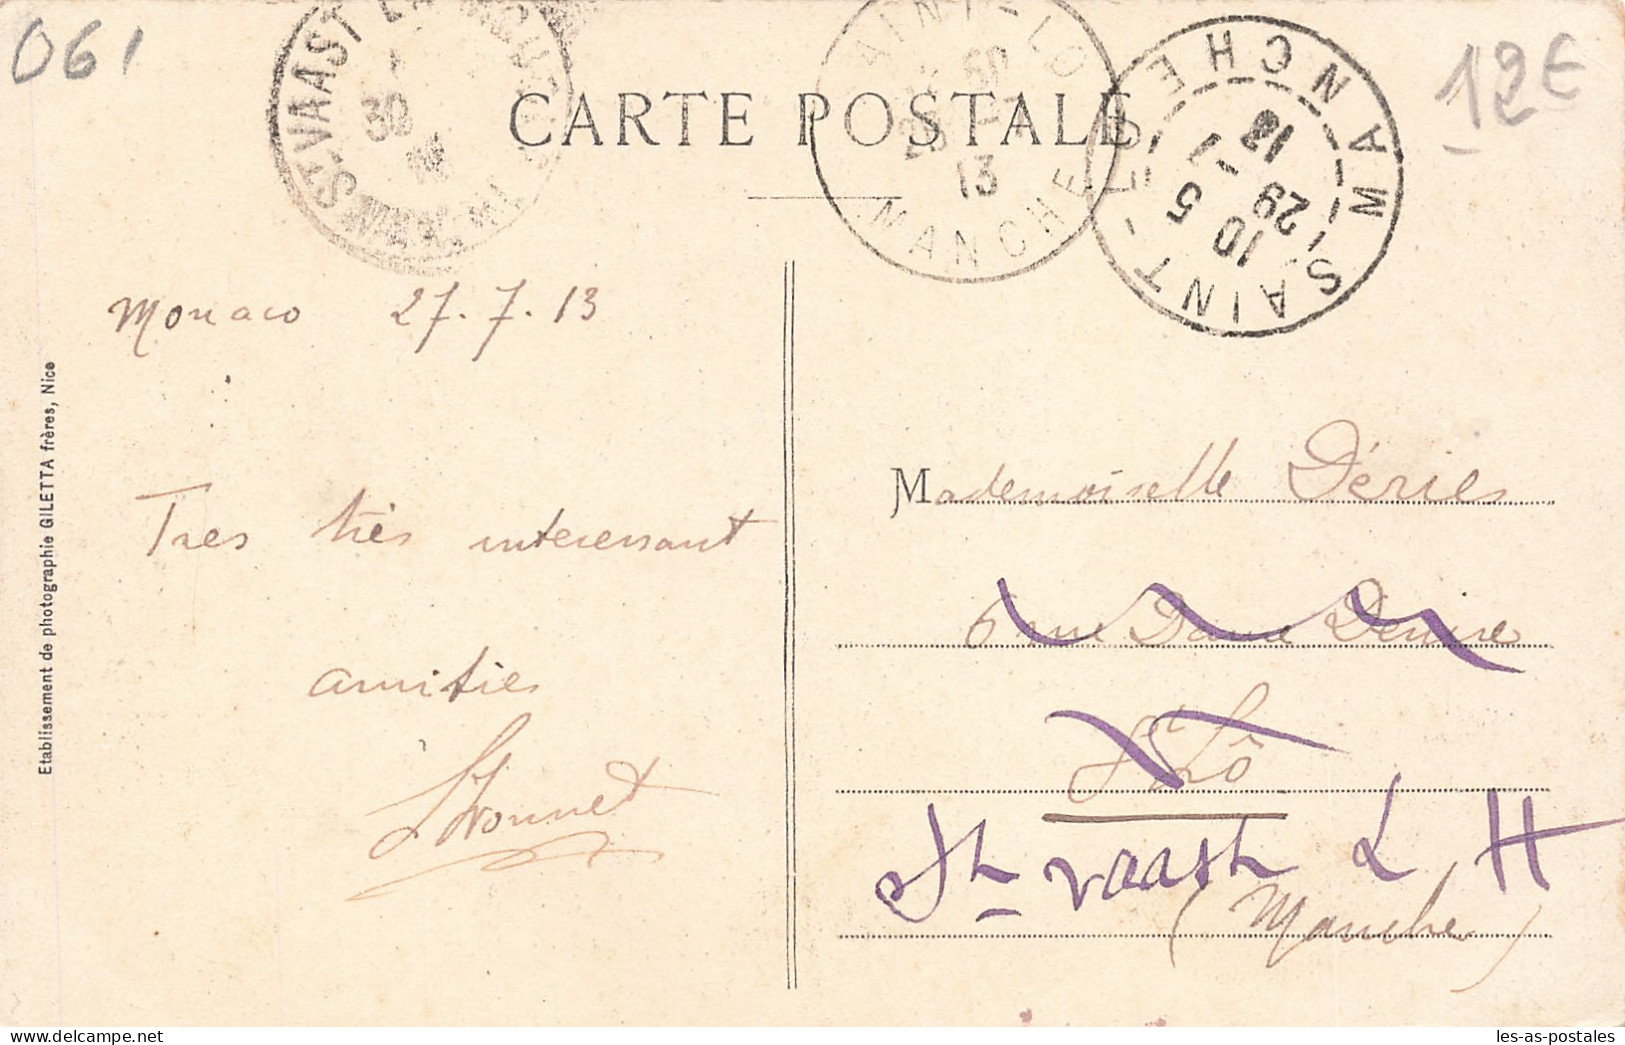 061
12€
ST VAAST LA
30
AINT-LO
13
MANCHE
SAINT-LO - MANCHE
10 5
29 - 7
13
CARTE POSTALE
Monaco 27.7.13
Tres très interessant
amities
Etablissement de photographie GILETTA frères, Nice
Mademoiselle Déries
6 rue Dame Denise
St Lô
St Vaast L H
(Manche)
les-as-postales